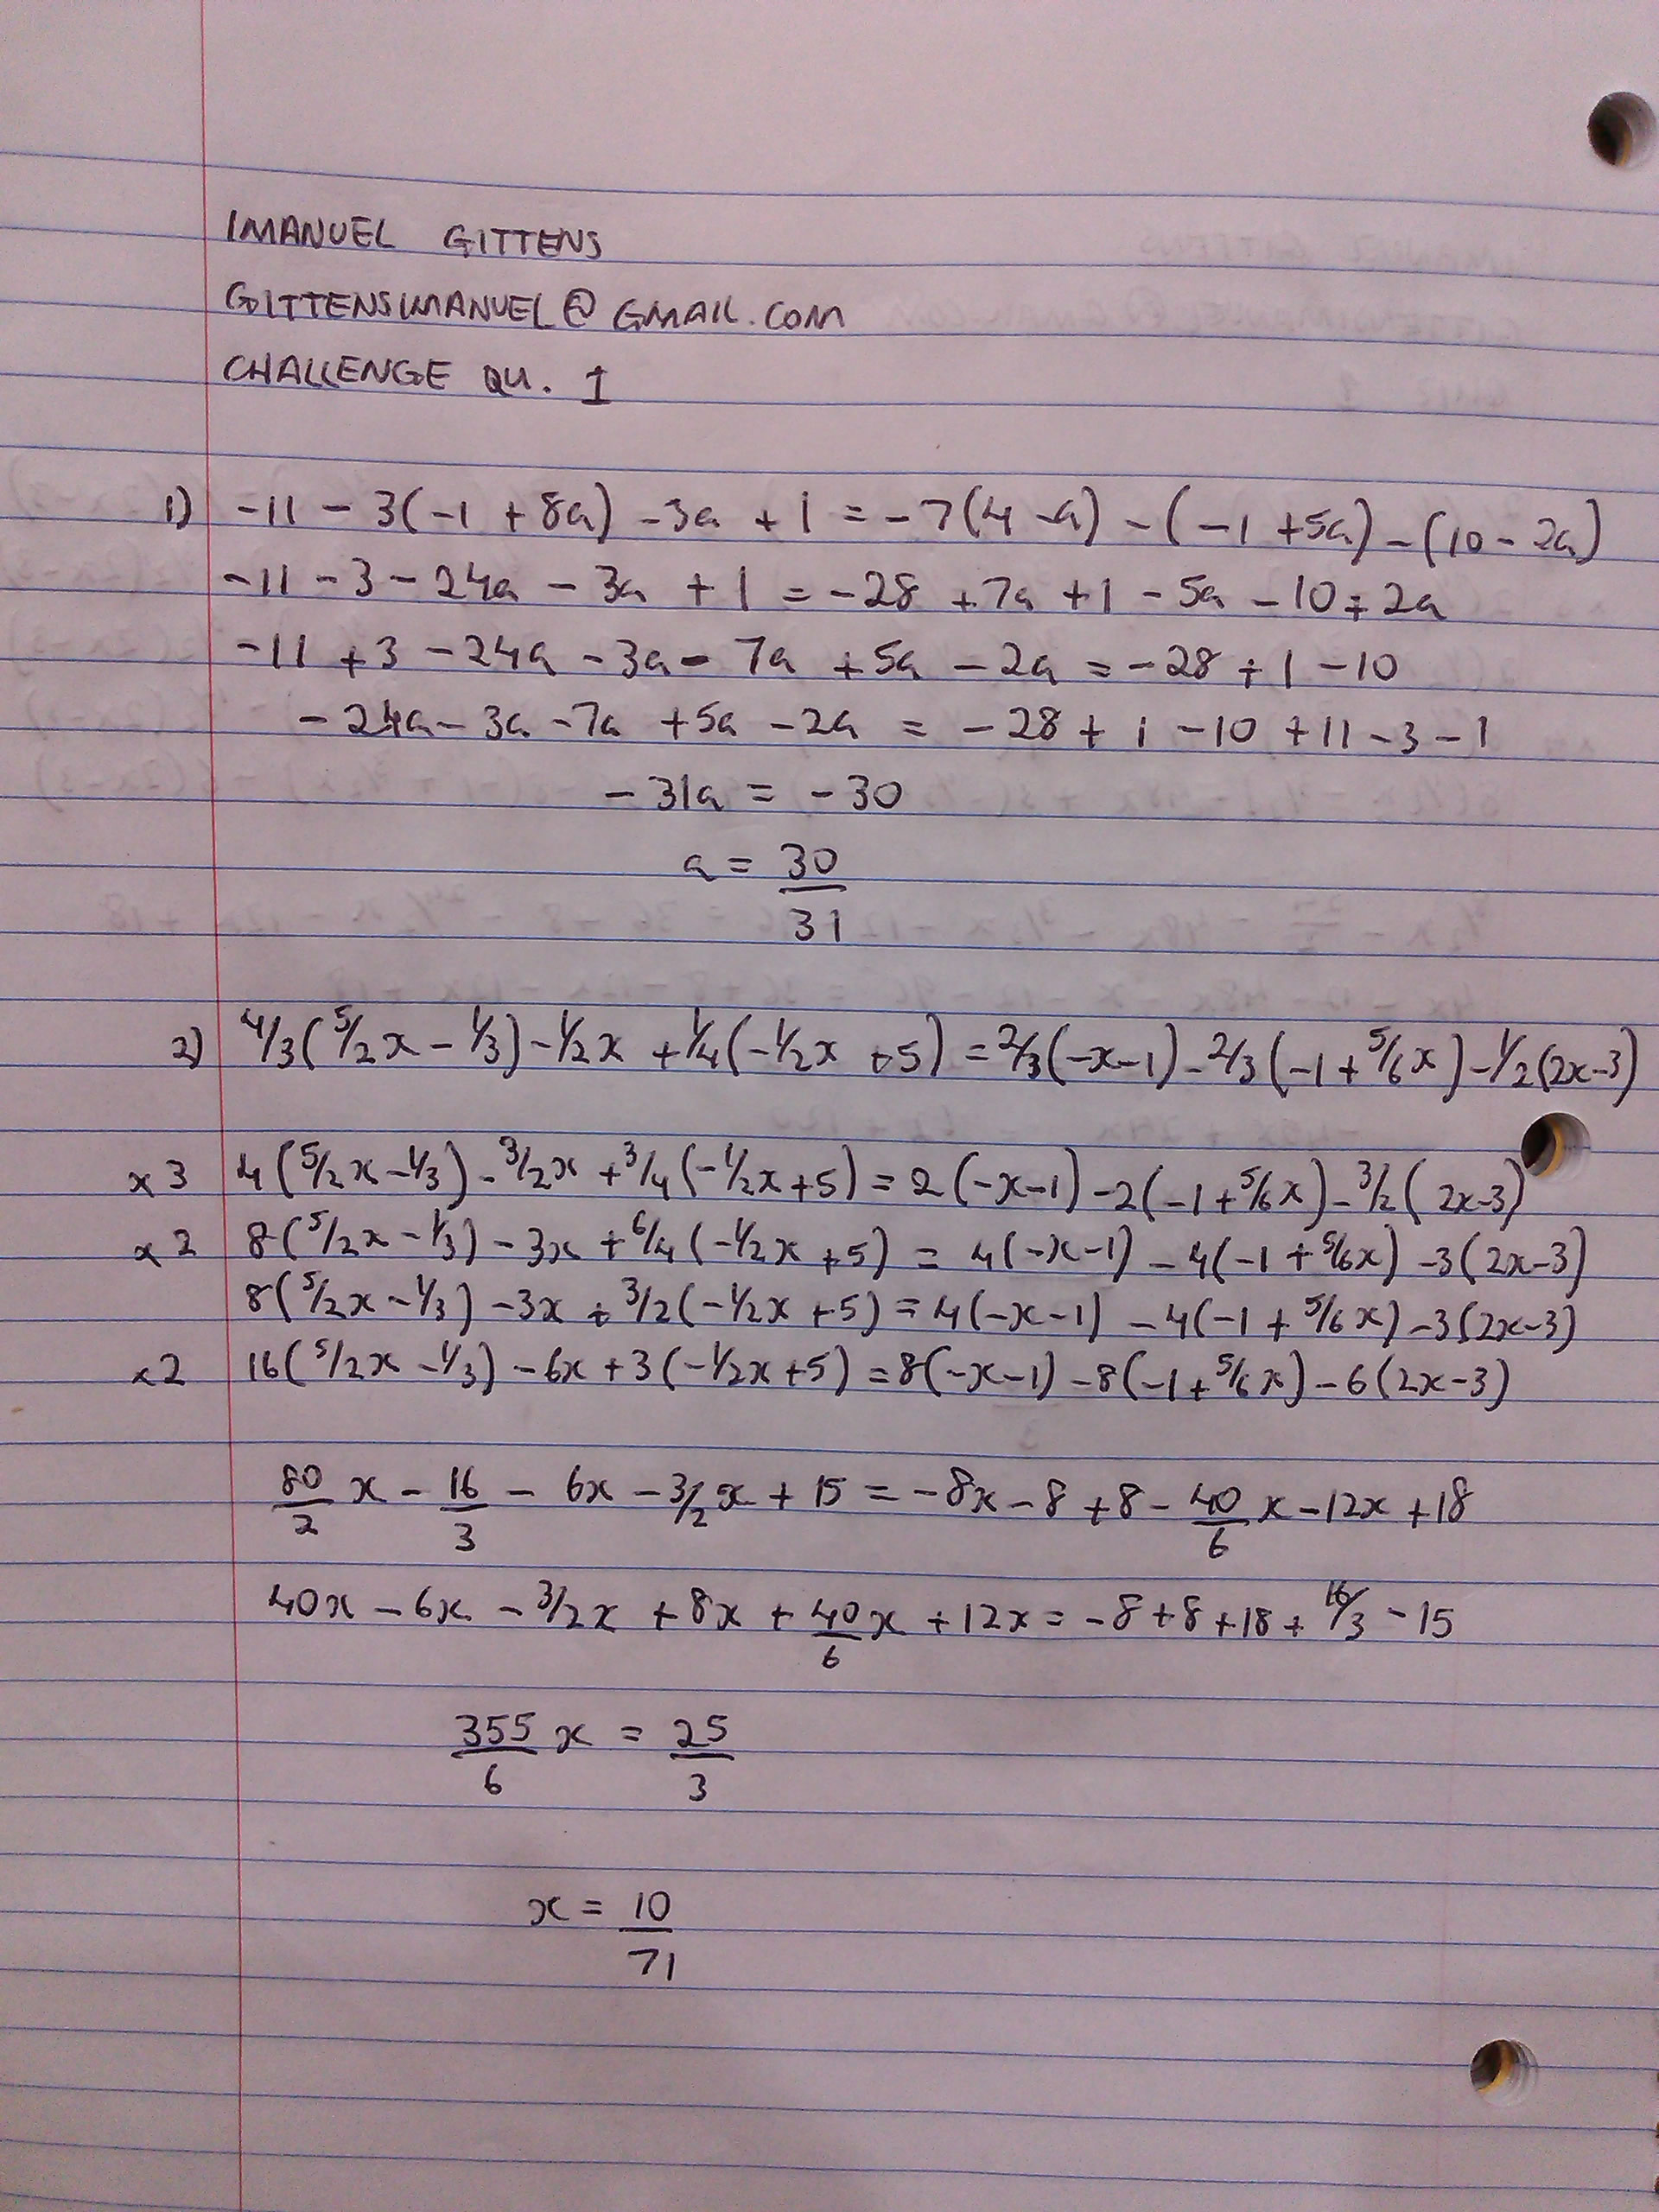 IMANUEL GITTENS
GITTENSIMANUEL@GMAIL.COM
CHALLENGE QU. 1
1) -11 - 3(-1 + 8a) - 3a + 1 = -7(4 - a) - (-1 + 5a) - (10 - 2a)
-11 - 3 - 24a - 3a + 1 = -28 + 7a + 1 - 5a - 10 + 2a
-11 + 3 - 24a - 3a - 7a + 5a - 2a = -28 + 1 - 10
-24a - 3a - 7a + 5a - 2a = -28 + 1 - 10 + 11 - 3 - 1
-31a = -30
a = 30/31
2) 4/3(5/2x - 1/3) - 1/2x + 1/4(-1/2x + 5) = 2/3(-x-1) - 2/3(-1 + 5/6x) - 1/2(2x-3)
x3 4(5/2x - 1/3) - 3/2x + 3/4(-1/2x + 5) = 2(-x-1) - 2(-1 + 5/6x) - 3/2(2x-3)
x2 8(5/2x - 1/3) - 3x + 6/4(-1/2x + 5) = 4(-x-1) - 4(-1 + 5/6x) - 3(2x-3)
8(5/2x - 1/3) - 3x + 3/2(-1/2x + 5) = 4(-x-1) - 4(-1 + 5/6x) - 3(2x-3)
x2 16(5/2x - 1/3) - 6x + 3(-1/2x + 5) = 8(-x-1) - 8(-1 + 5/6x) - 6(2x-3)
80/2 x - 16/3 - 6x - 3/2x + 15 = -8x - 8 + 8 - 40/6 x - 12x + 18
40x - 6x - 3/2x + 8x + 40/6 x + 12x = -8 + 8 + 18 + 16/3 - 15
355/6 x = 25/3
x = 10/71